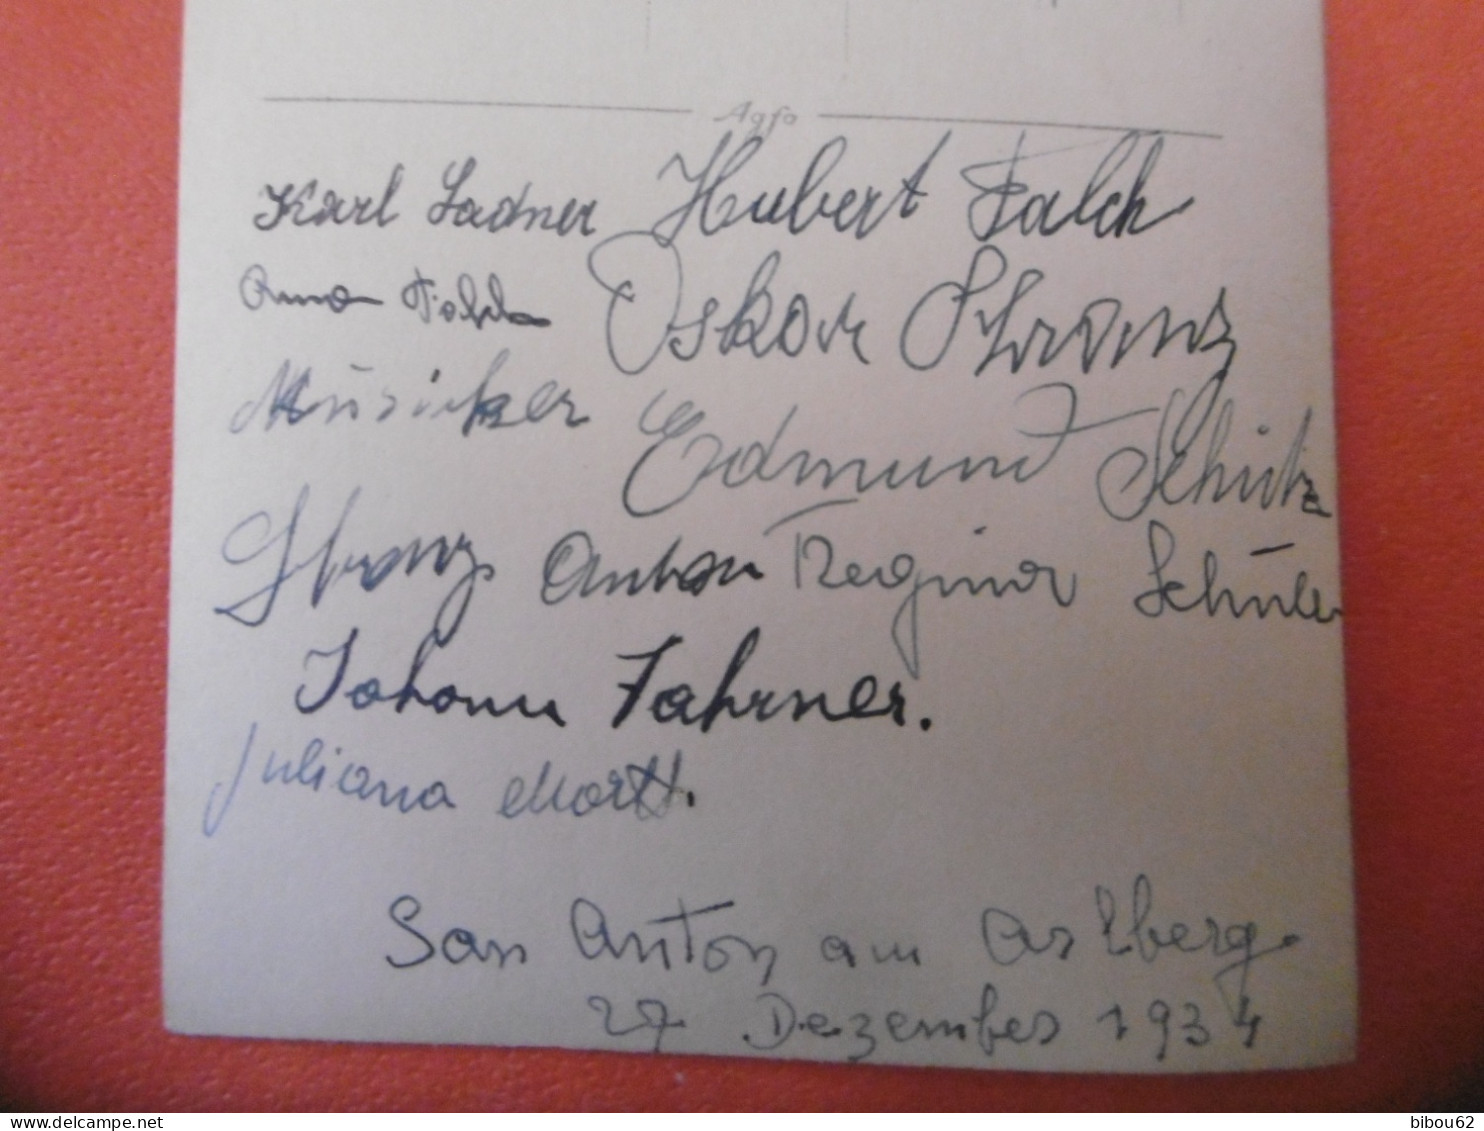 Agfa
Karl Ladner Hubert Falch
Anna Falch Oskar Schranz
Musicker Edmund Schütz
Schranz Anton Regina Schuler
Johann Fahrner.
Juliana Mortt.
San Anton am Arlberg
27 Dezember 1934
bibou62